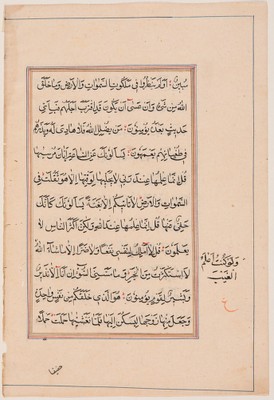 مُبِينٌ اَوَلَمْ يَنْظُرُوا فِي مَلَكُوتِ السَّمٰوَاتِ وَالْاَرْضِ وَمَا خَلَقَ
اللهُ مِنْ شَيْءٍ وَاَنْ عَسٰى اَنْ يَكُونَ قَدِ اقْتَرَبَ اَجَلُهُمْ فَبِاَيِّ
حَدِيثٍ بَعْدَهُ يُؤْمِنُونَ مَنْ يُضْلِلِ اللهُ فَلَا هَادِيَ لَهُ وَيَذَرُهُمْ
فِي طُغْيَانِهِمْ يَعْمَهُونَ يَسْاَلُونَكَ عَنِ السَّاعَةِ اَيَّانَ مُرْسٰيهَا
قُلْ اِنَّمَا عِلْمُهَا عِنْدَ رَبِّي لَا يُجَلِّيهَا لِوَقْتِهَا اِلَّا هُوَ ثَقُلَتْ فِي
السَّمٰوَاتِ وَالْاَرْضِ لَا تَاْتِيكُمْ اِلَّا بَغْتَةً يَسْاَلُونَكَ كَاَنَّكَ
حَفِيٌّ عَنْهَا قُلْ اِنَّمَا عِلْمُهَا عِنْدَ اللهِ وَلٰكِنَّ اَكْثَرَ النَّاسِ لَا
يَعْلَمُونَ قُلْ لَا اَمْلِكُ لِنَفْسِي نَفْعًا وَلَا ضَرًّا اِلَّا مَا شَاءَ اللهُ
وَلَوْ كُنْتُ اَعْلَمُ
الْغَيْبَ
لَاسْتَكْثَرْتُ مِنَ الْخَيْرِ وَمَا مَسَّنِيَ السُّوءُ اِنْ اَنَا اِلَّا نَذِيرٌ
وَبَشِيرٌ لِقَوْمٍ يُؤْمِنُونَ هُوَ الَّذِي خَلَقَكُمْ مِنْ نَفْسٍ وَاحِدَةٍ
وَجَعَلَ مِنْهَا زَوْجَهَا لِيَسْكُنَ اِلَيْهَا فَلَمَّا تَغَشّٰيهَا حَمَلَتْ حَمْلًا
خفيفا